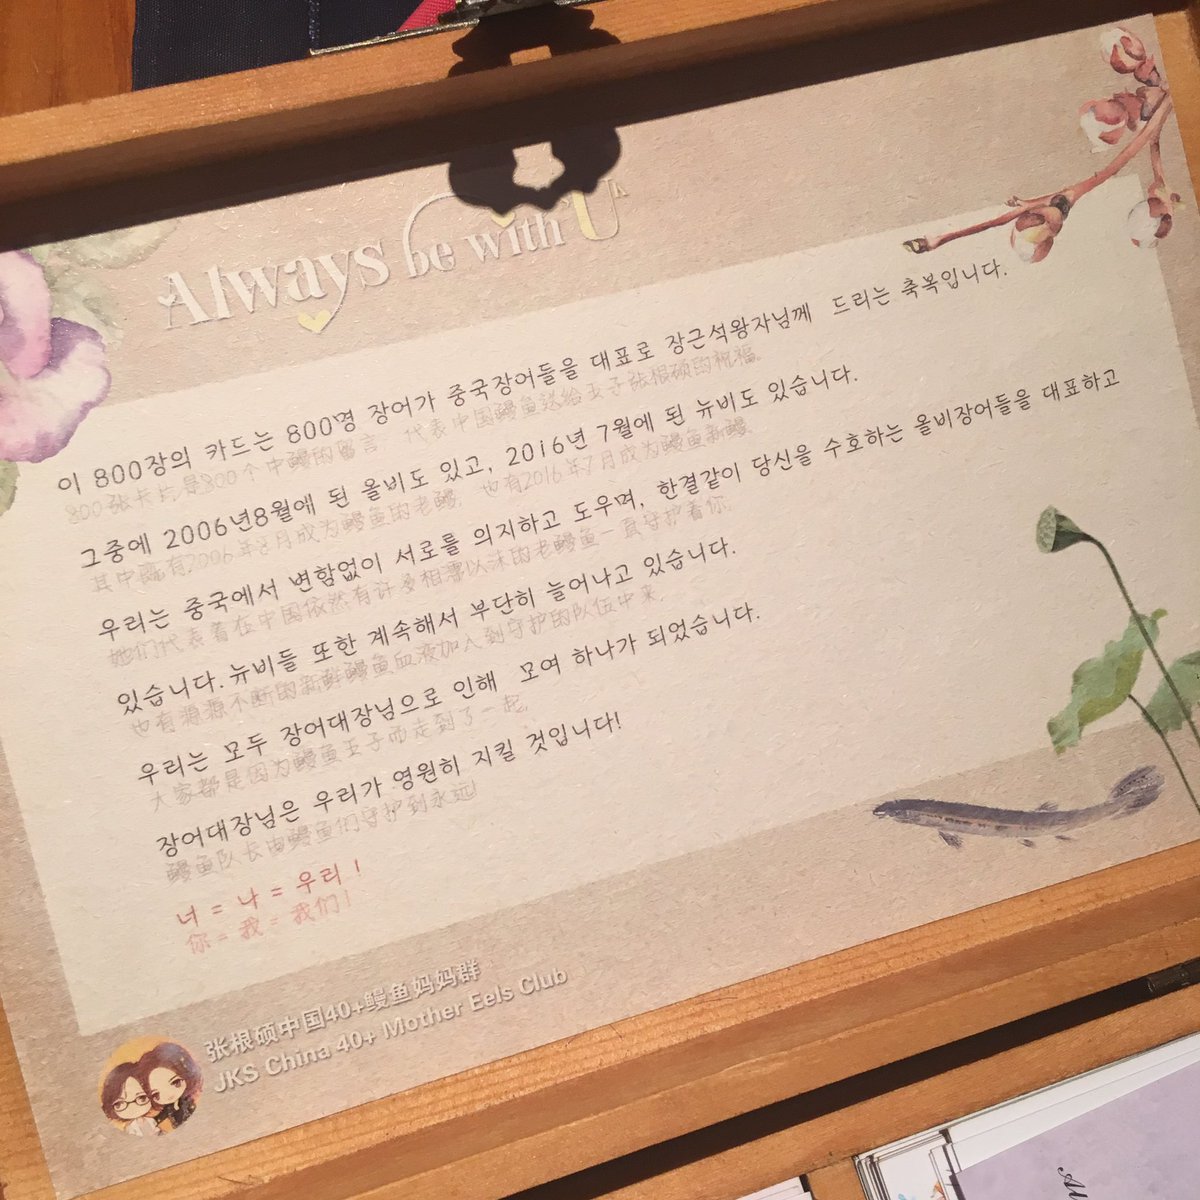 Always be with U
이 800장의 카드는 800명 장어가 중국장어들을 대표로 장근석왕자님께 드리는 축복입니다.
800张卡片是800个中鳗的留言 代表中国鳗鱼送给王子张根硕的祝福.
그중에 2006년8월에 된 올비도 있고, 2016년 7월에 된 뉴비도 있습니다.
其中既有2006年8月成为鳗鱼的老鳗, 也有2016年7月成为鳗鱼新鳗.
우리는 중국에서 변함없이 서로를 의지하고 도우며, 한결같이 당신을 수호하는 올비장어들을 대표하고
她们代表着在中国依然有许多相濡以沫的老鳗鱼一直守护着你.
있습니다. 뉴비들 또한 계속해서 부단히 늘어나고 있습니다.
也有源源不断的新鲜鳗鱼血液加入到守护的队伍中来.
우리는 모두 장어대장님으로 인해 모여 하나가 되었습니다.
大家都是因为鳗鱼王子而走到了一起.
장어대장님은 우리가 영원히 지킬 것입니다!
鳗鱼队长由鳗鱼们守护到永远!
너 = 나 = 우리 !
你 = 我 = 我们!
张根硕中国40+鳗鱼妈妈群
JKS China 40+ Mother Eels Club